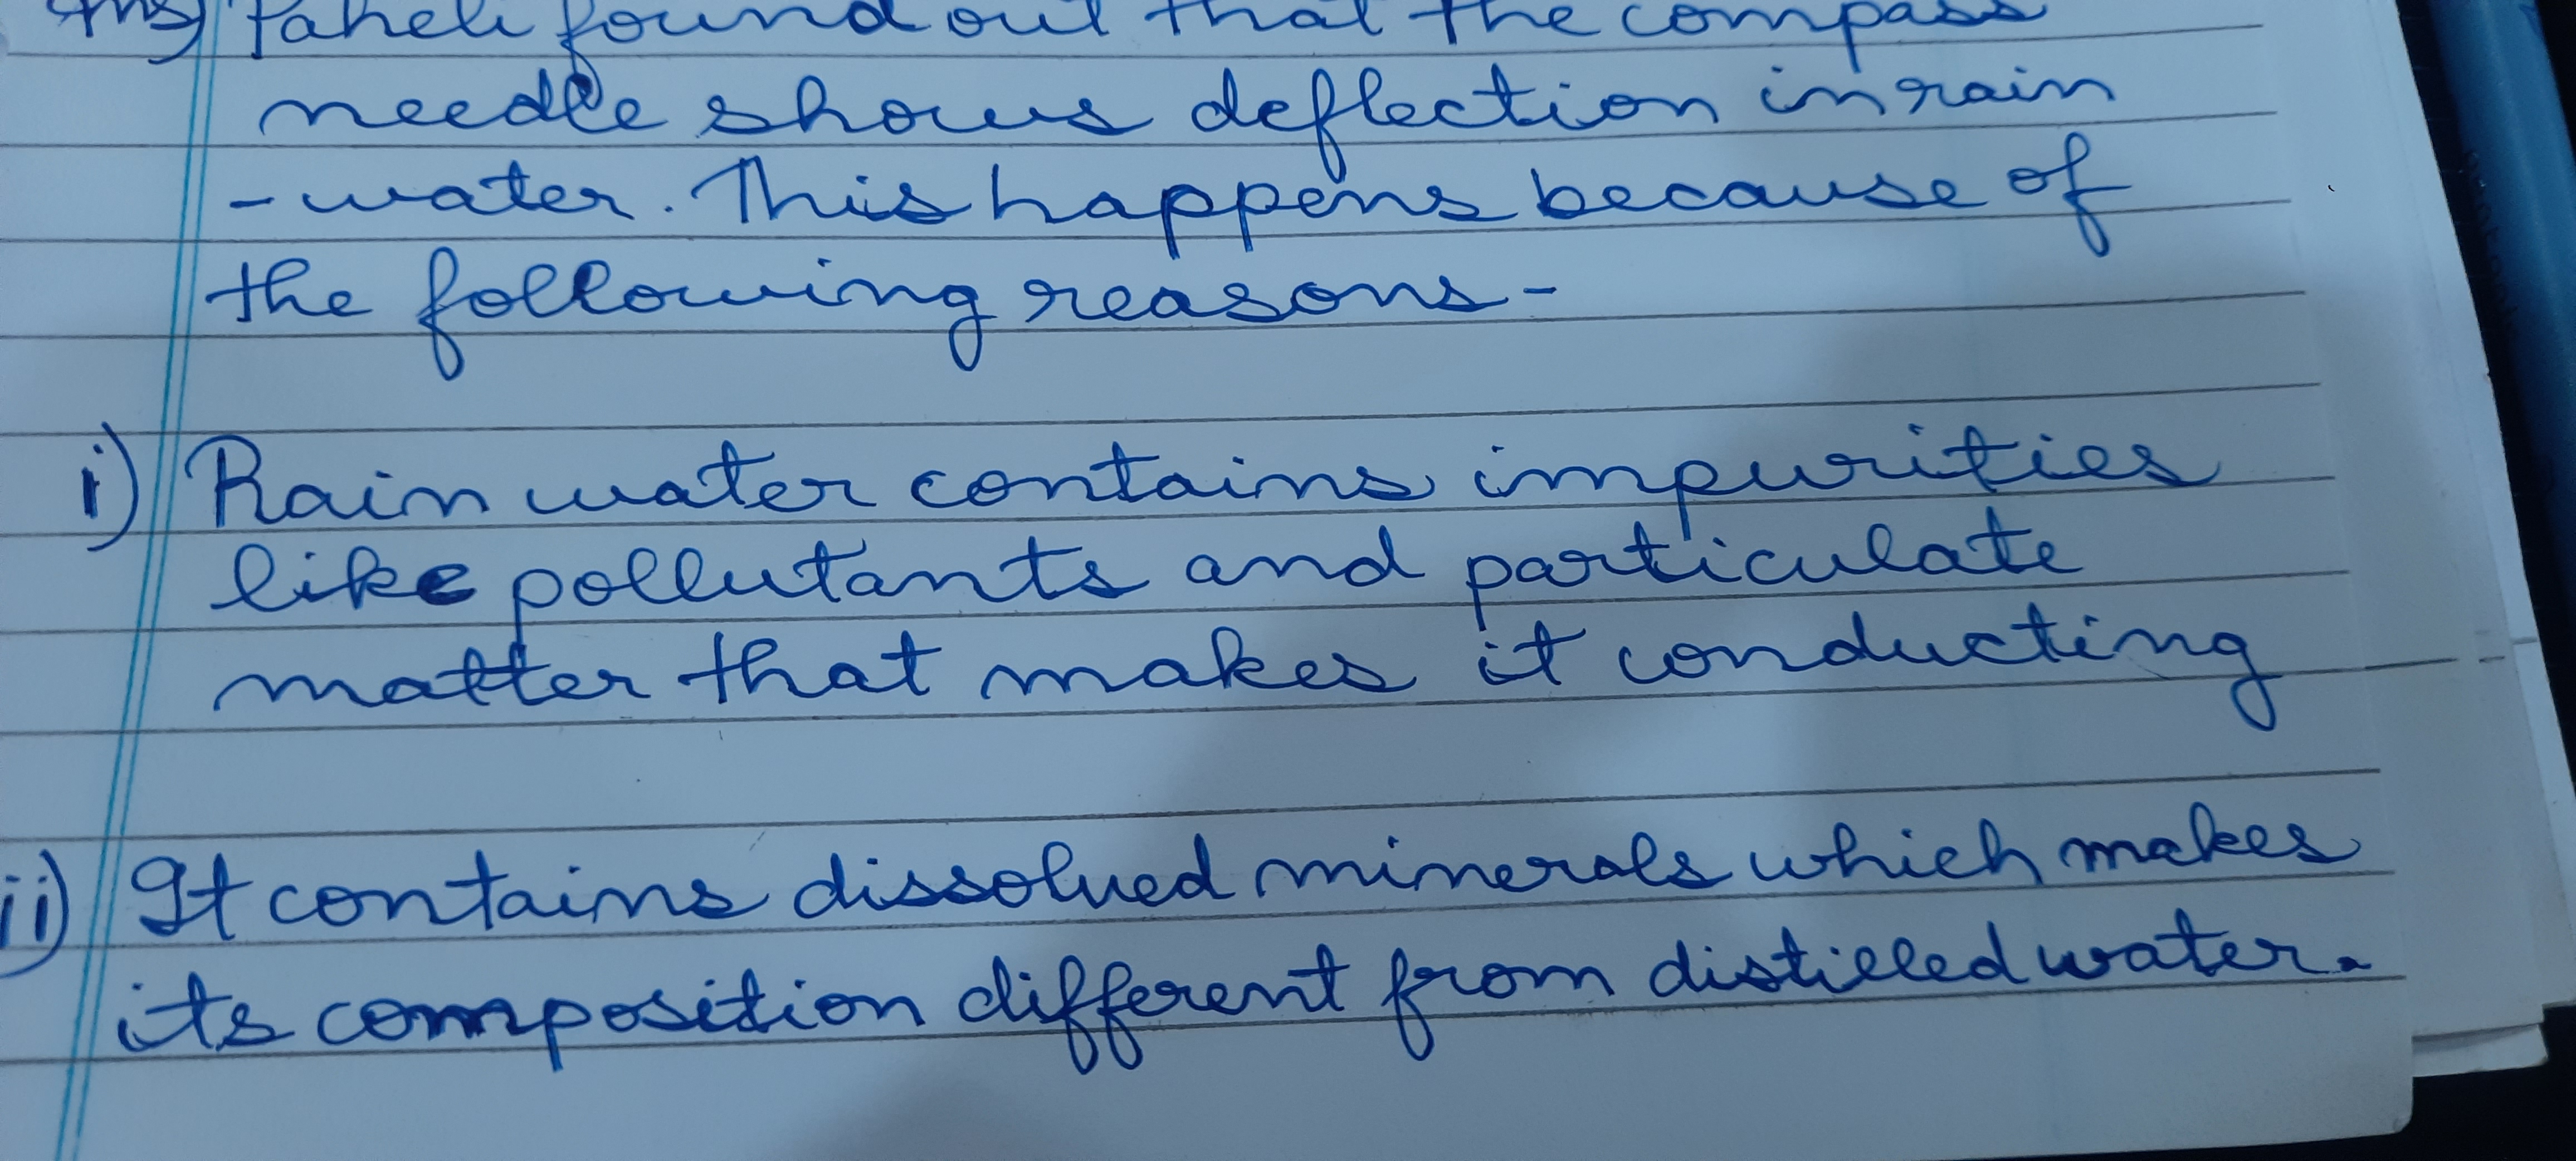 Ans) Paheli found out that the compass
needle shows deflection in rain
- water. This happens because of
the following reasons -
i) Rain water contains impurities
like pollutants and particulate
matter that makes it conducting
ii) It contains dissolved minerals which makes
its composition different from distilled water.